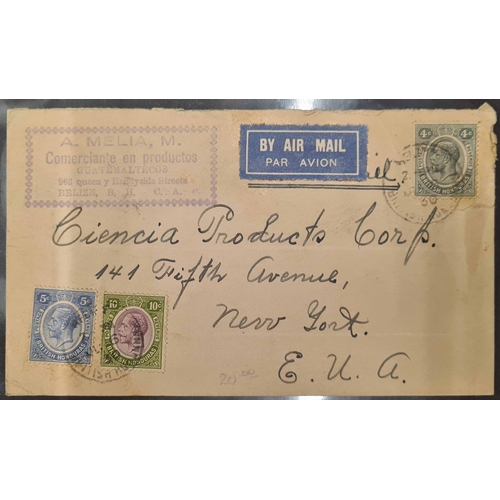 A. MELIA, M.
Comerciante en productos
GUATEMALTECOS
966 queen y Handyside Streets
BELIZE, B. H. C. A.
BY AIR MAIL
PAR AVION
4c 4c
BRITISH HONDURAS
Ciencia Products Corp.
141 Fifth Avenue,
New York.
E. U. A.
5c 5c
BRITISH HONDURAS
10c 10c
BRITISH HONDURAS
20.00